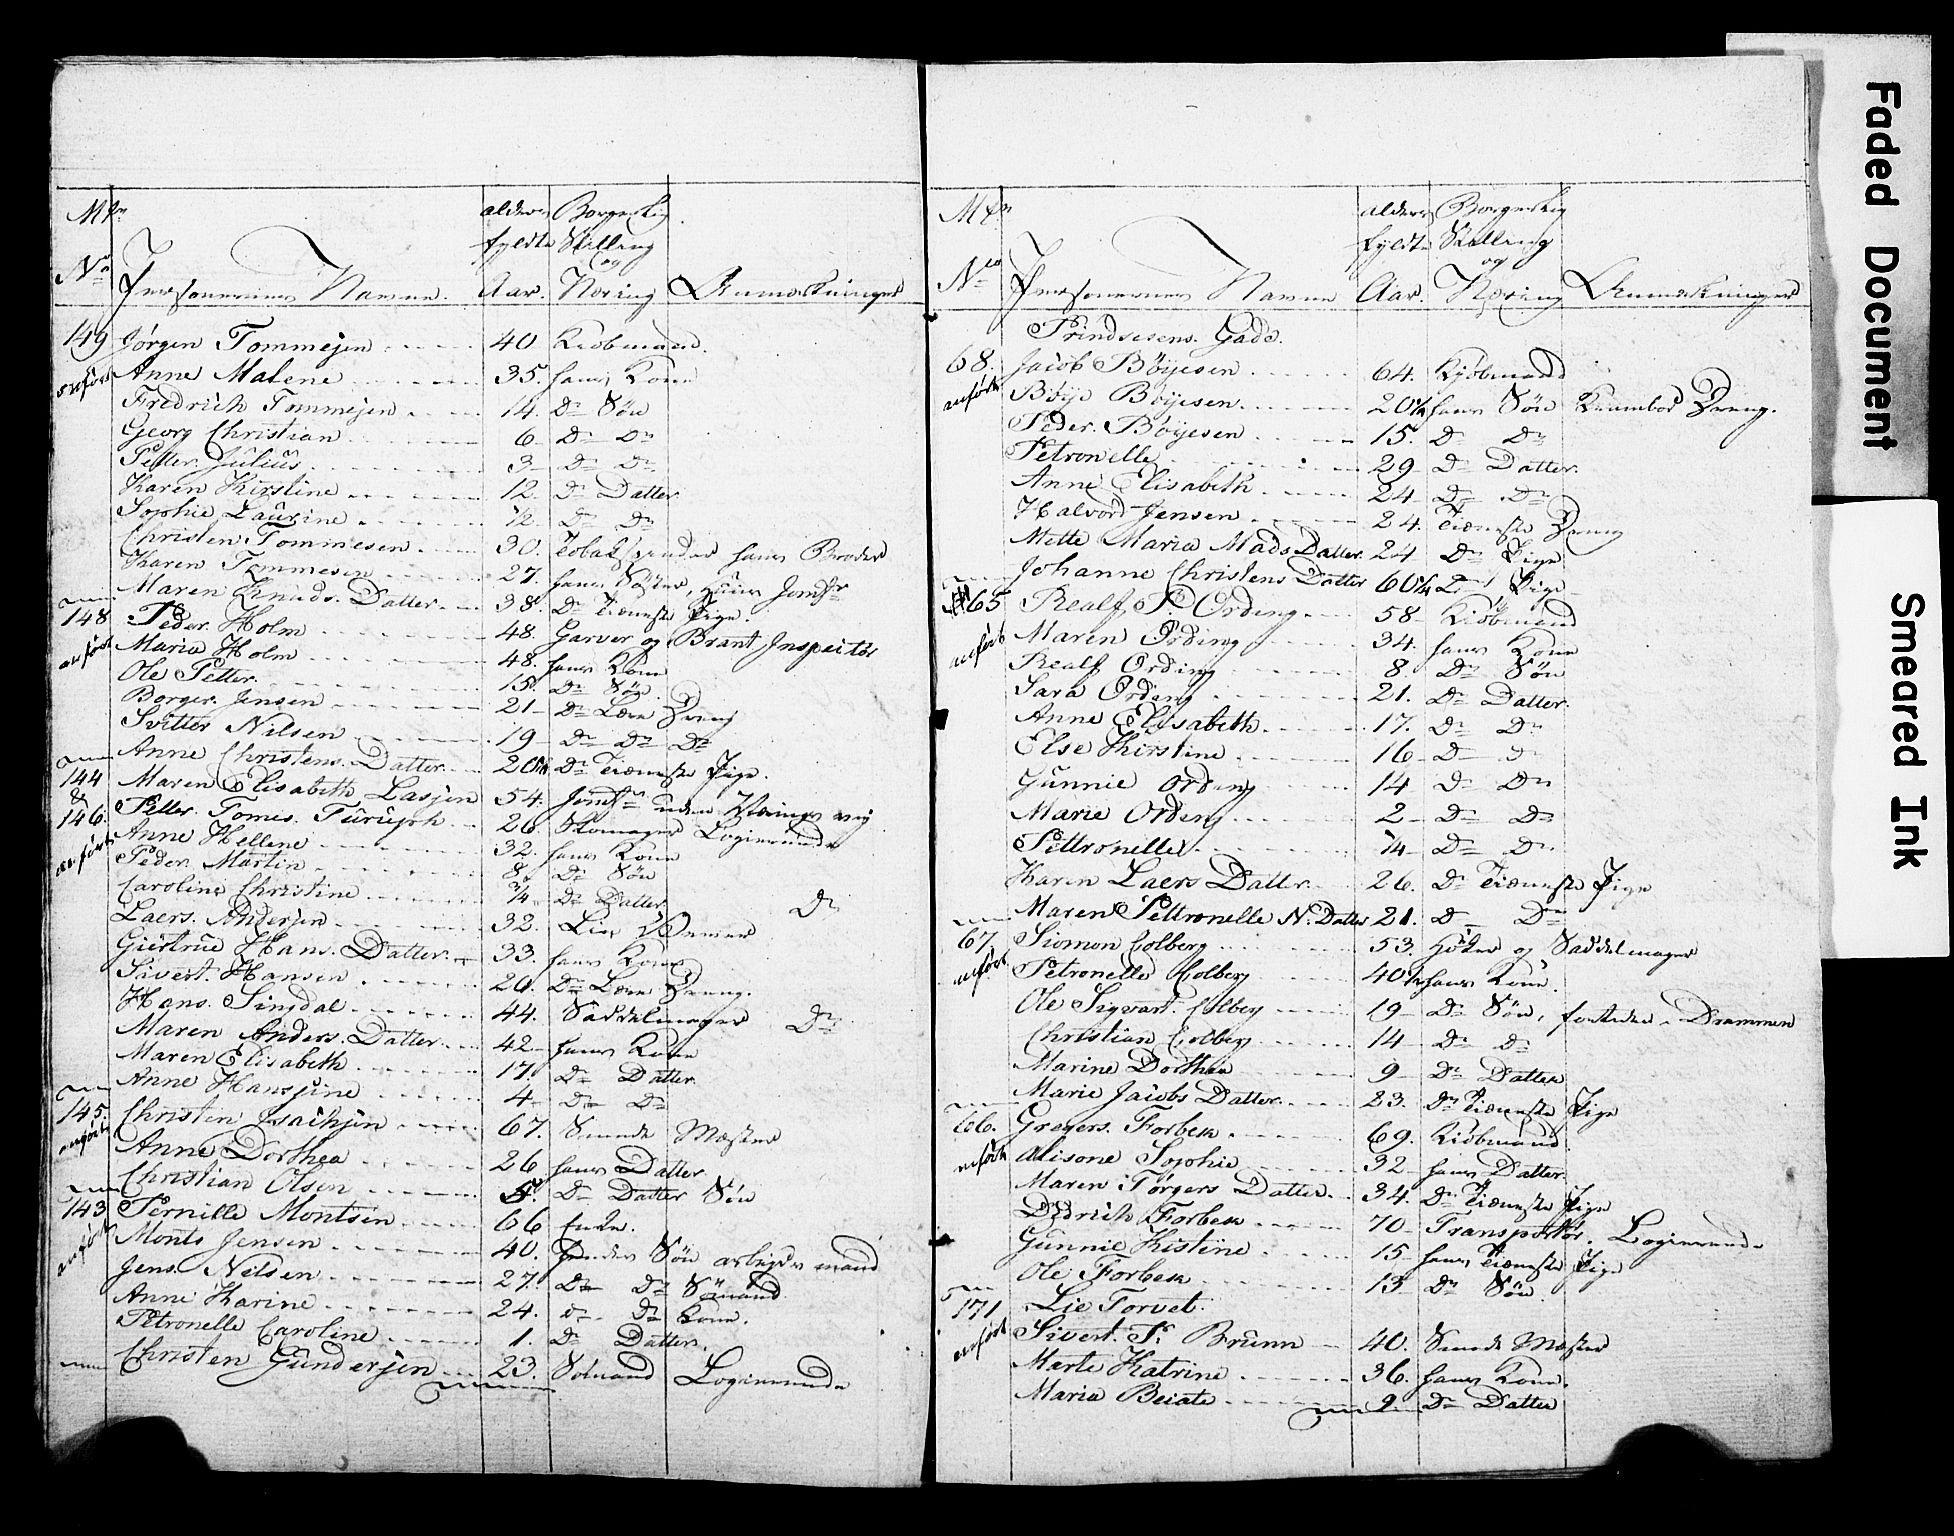 Mtr No Personernes Navne. alders fyldte Aar. Borgerlig Stilling og Næring Anmærkninger
149 Jørgen Tommesen 40 Kiøbmand.
anført Anne Malene 35. hans Kone
Fredrich Tommesen 14. Do Søn
Georg Christian 6 Do Do
Petter Julius 3 Do Do
Karen Kirstine 12 Do Datter
Sophie Laurine 1/2 Do Do
Christen Tommesen 30. Tobakspinder hans Broder
Karen Tommesen 27. hans Søster, Jomfr
Maren Knuds Datter 38. Do Tieneste Pige.
148 Peder Holm 48. Garver og Brant Inspectør
anført Maria Holm 48. hans Kone
Ole Petter 15. Do Søn
Borger Jensen 21 Do Lære Dreng
Svitter Nilsen 19 Do Do Do
Anne Christens Datter 20 1/2 Do Tieneste Pige.
144 Maren Elisabeth Lassen 54. Jomfr uden Nærings vej
& 146. Petter Tomes. 26 Skomager Logerende
anført Anne Hellene 32. hans Kone
Peder Martin 8 Do Søn
Caroline Christine 3/4 Do Datter
Laers Andersen 32. Do
Giertrue Hans Datter 33. hans Kone
Sivert Hansen 20. Do Lære Dreng.
Hans Singdal 44. Saddelmager Do
Maren Anders Datter 42 hans Kone
Maren Elisabeth 17. Do Datter
Anne Hansine 4 Do Do
145. Christen Isachsen 67. Smede Mæster
anført Anne Dorthea 26 hans Datter
Christian Olsen 5. Do Datter Søn
143 Pernille Montsen 66 Enke.
anført Monts Jensen 40. hendes Søn arbejds mand
Jens Nilsen 27. Do Do Sømand
Anne Karine 24. Do Do Kone.
Petronelle Caroline 1. Do Datter.
Christen Gundersen 23. Sømand Logerende
Mtr No Personernes Navne alders fyldte Aar. Borgerlig Stilling og Næring Anmærkninger
Prindsesens Gade.
68. Jacob Bøyesen 64. Kjøbmand
anført Bøye Bøyesen 20 1/2 hans Søn Krambod Dreng.
Peder Bøyesen 15. Do Do
Petronelle 29 Do Datter.
Anne Elisabeth 24 Do Do
Halvord Jensen 24. Tieneste Dreng
Mette Maria Mads Datter 24 Do Pige
Johanne Christens Datter 60 1/4 Do Pige
65 Realf P. Ording 58 Kiøbmand
anført Maren Ording 34. hans Kone
Realf Ording 8. Do Søn
Sara Ording 21. Do Datter.
Anne Elisabeth 17. Do Do
Else Kirstine 16 Do Do
Gunnie Ording 14 Do Do
Marie Ording 2 Do Do
Pettronelle 1/4 Do Do
Karen Laers Datter 26. Do Tieneste Pige
Maren Pettronelle N. Datter 21. Do Do
67. Siomon Colberg 53. Høker og Saddelmager
anført Petronelle Colberg 40 1/2 hans Kone.
Ole Sigvart Colberg 19 Do Søn, Drammen
Christian Colberg 14 Do Do
Marine Dorthea 9 Do Datter
Marie Jacobs Datter 23. Do Tieneste Pige
66. Gregers Forbek 69. Kiøbmand
anført Alisone Sophie 32 hans Datter
Maren Tørgers Datter 34. Do Tieneste Pige
Didrich Forbek 70 Transportør. Logerende
Gunnie Kistine 15 hans Tieneste Pige
Ole Forbek 13 Do Søn
171 Lie Torvet
anført Sivert P. Brunn 40. Smede Mæster
Marte Katrine 36. hans Kone.
Maria Beiate 9 Do Datter
Faded Document
Smeared Ink